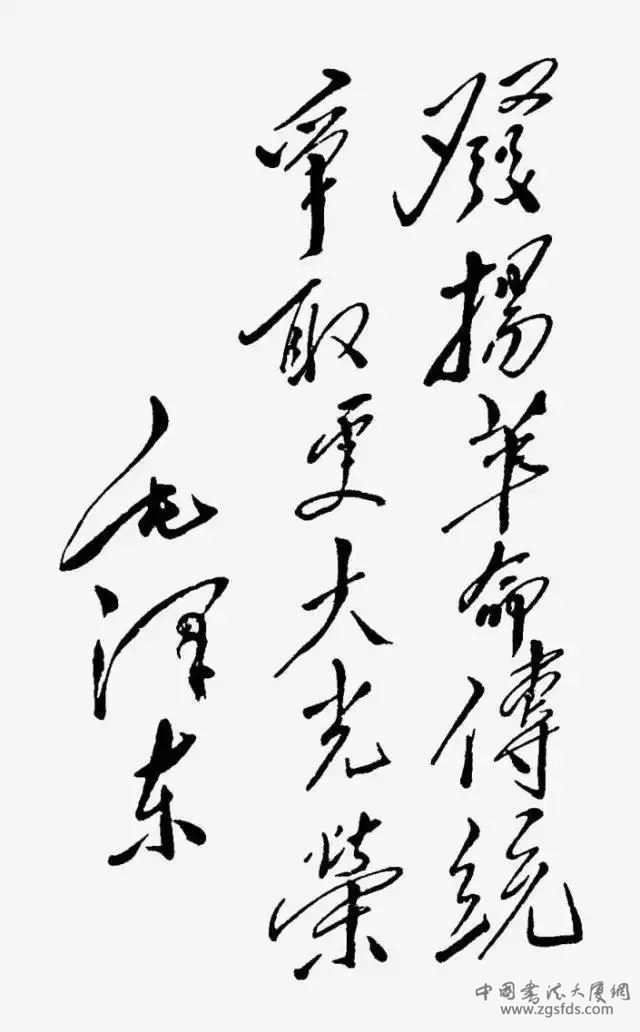 發揚革命傳統
爭取更大光榮
毛澤东
中國書法大厦網
www.zgsfds.com